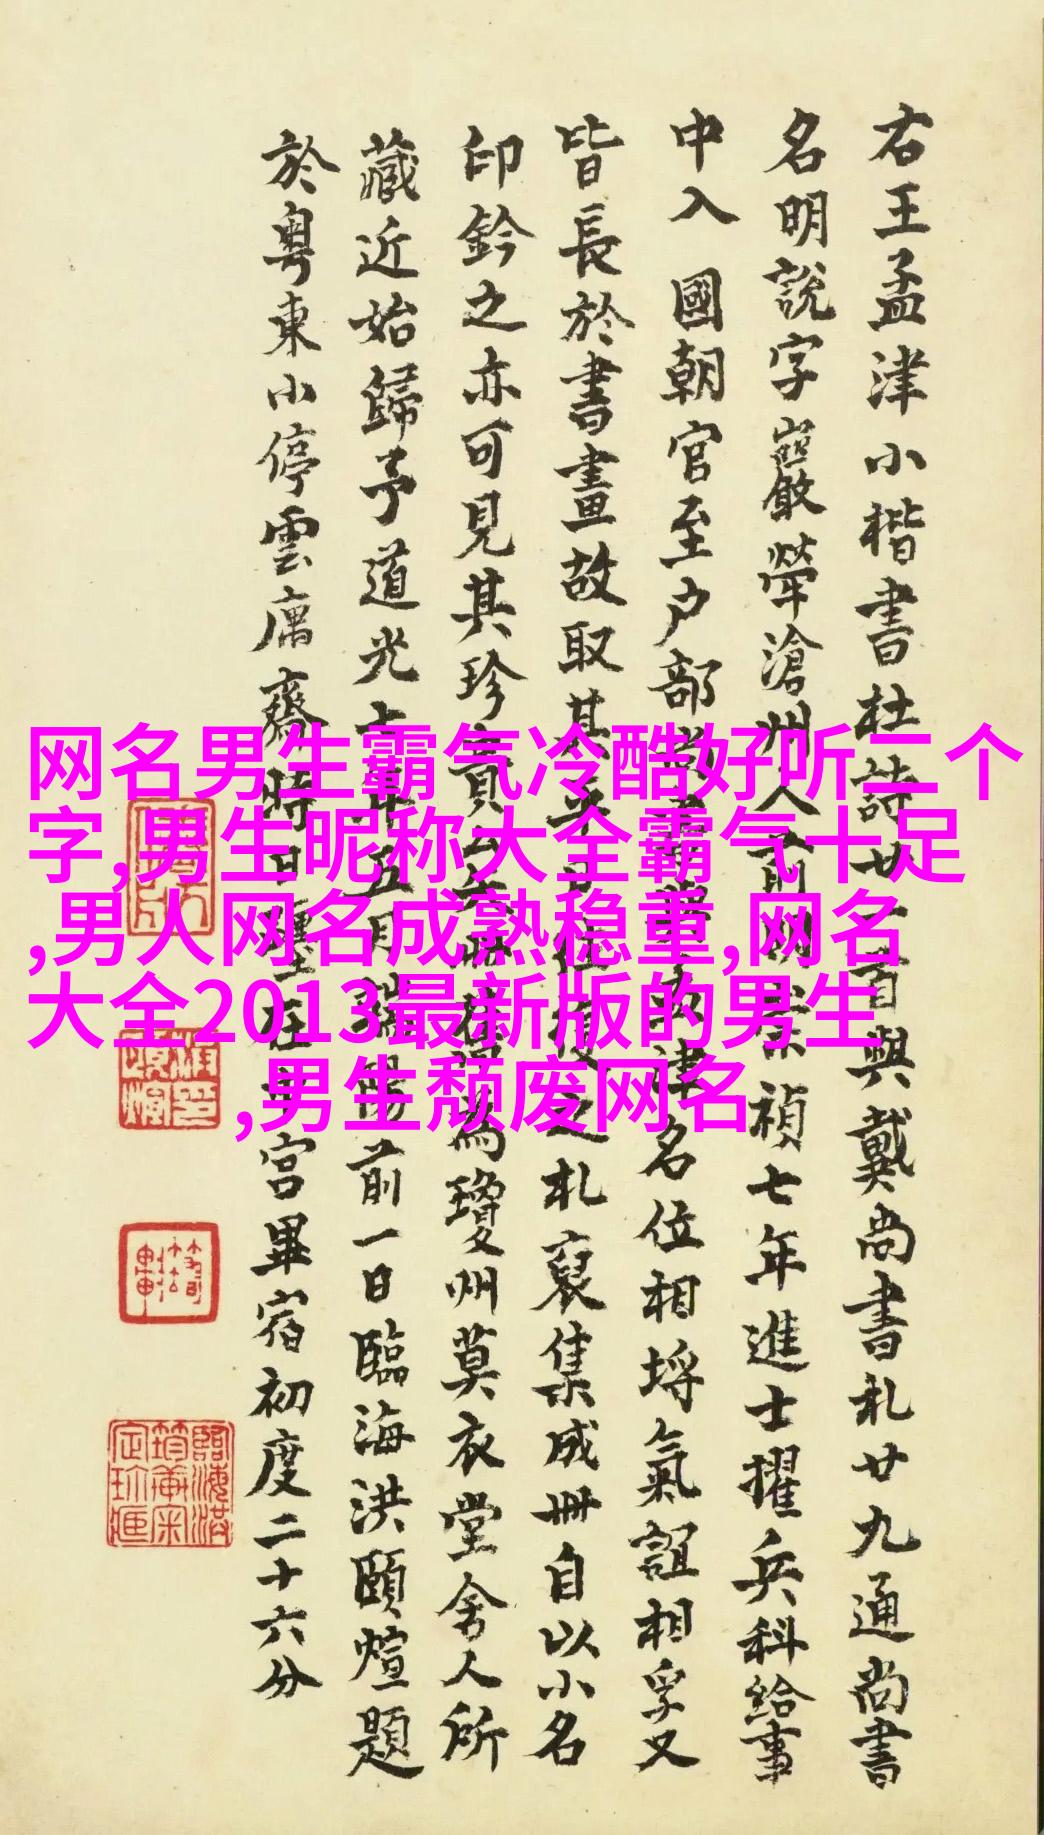 右王孟津小楷書杜詩廿一首與戴尚書札廿九通尚書
名明說字巖犖滄州人前明崇禎七年進士擢兵科給事
中入國朝官至户部尚書與孟津名位相埒氣誼相孚又
皆長於書畫故取其平日往復之札裒集成冊自以小名
印鈐之亦可見其珍貴為瓊州莫衣堂舍人所
藏近始歸予道光十年五月端陽前一日臨海洪頤煊題
於粵東小停雲廎齋時日躔在宮畢宿初度二十六分
网名男生霸气冷酷好听二个
字,男生昵称大全霸气十足
,男人网名成熟稳重,网名
大全2013最新版的男生
,男生颓废网名